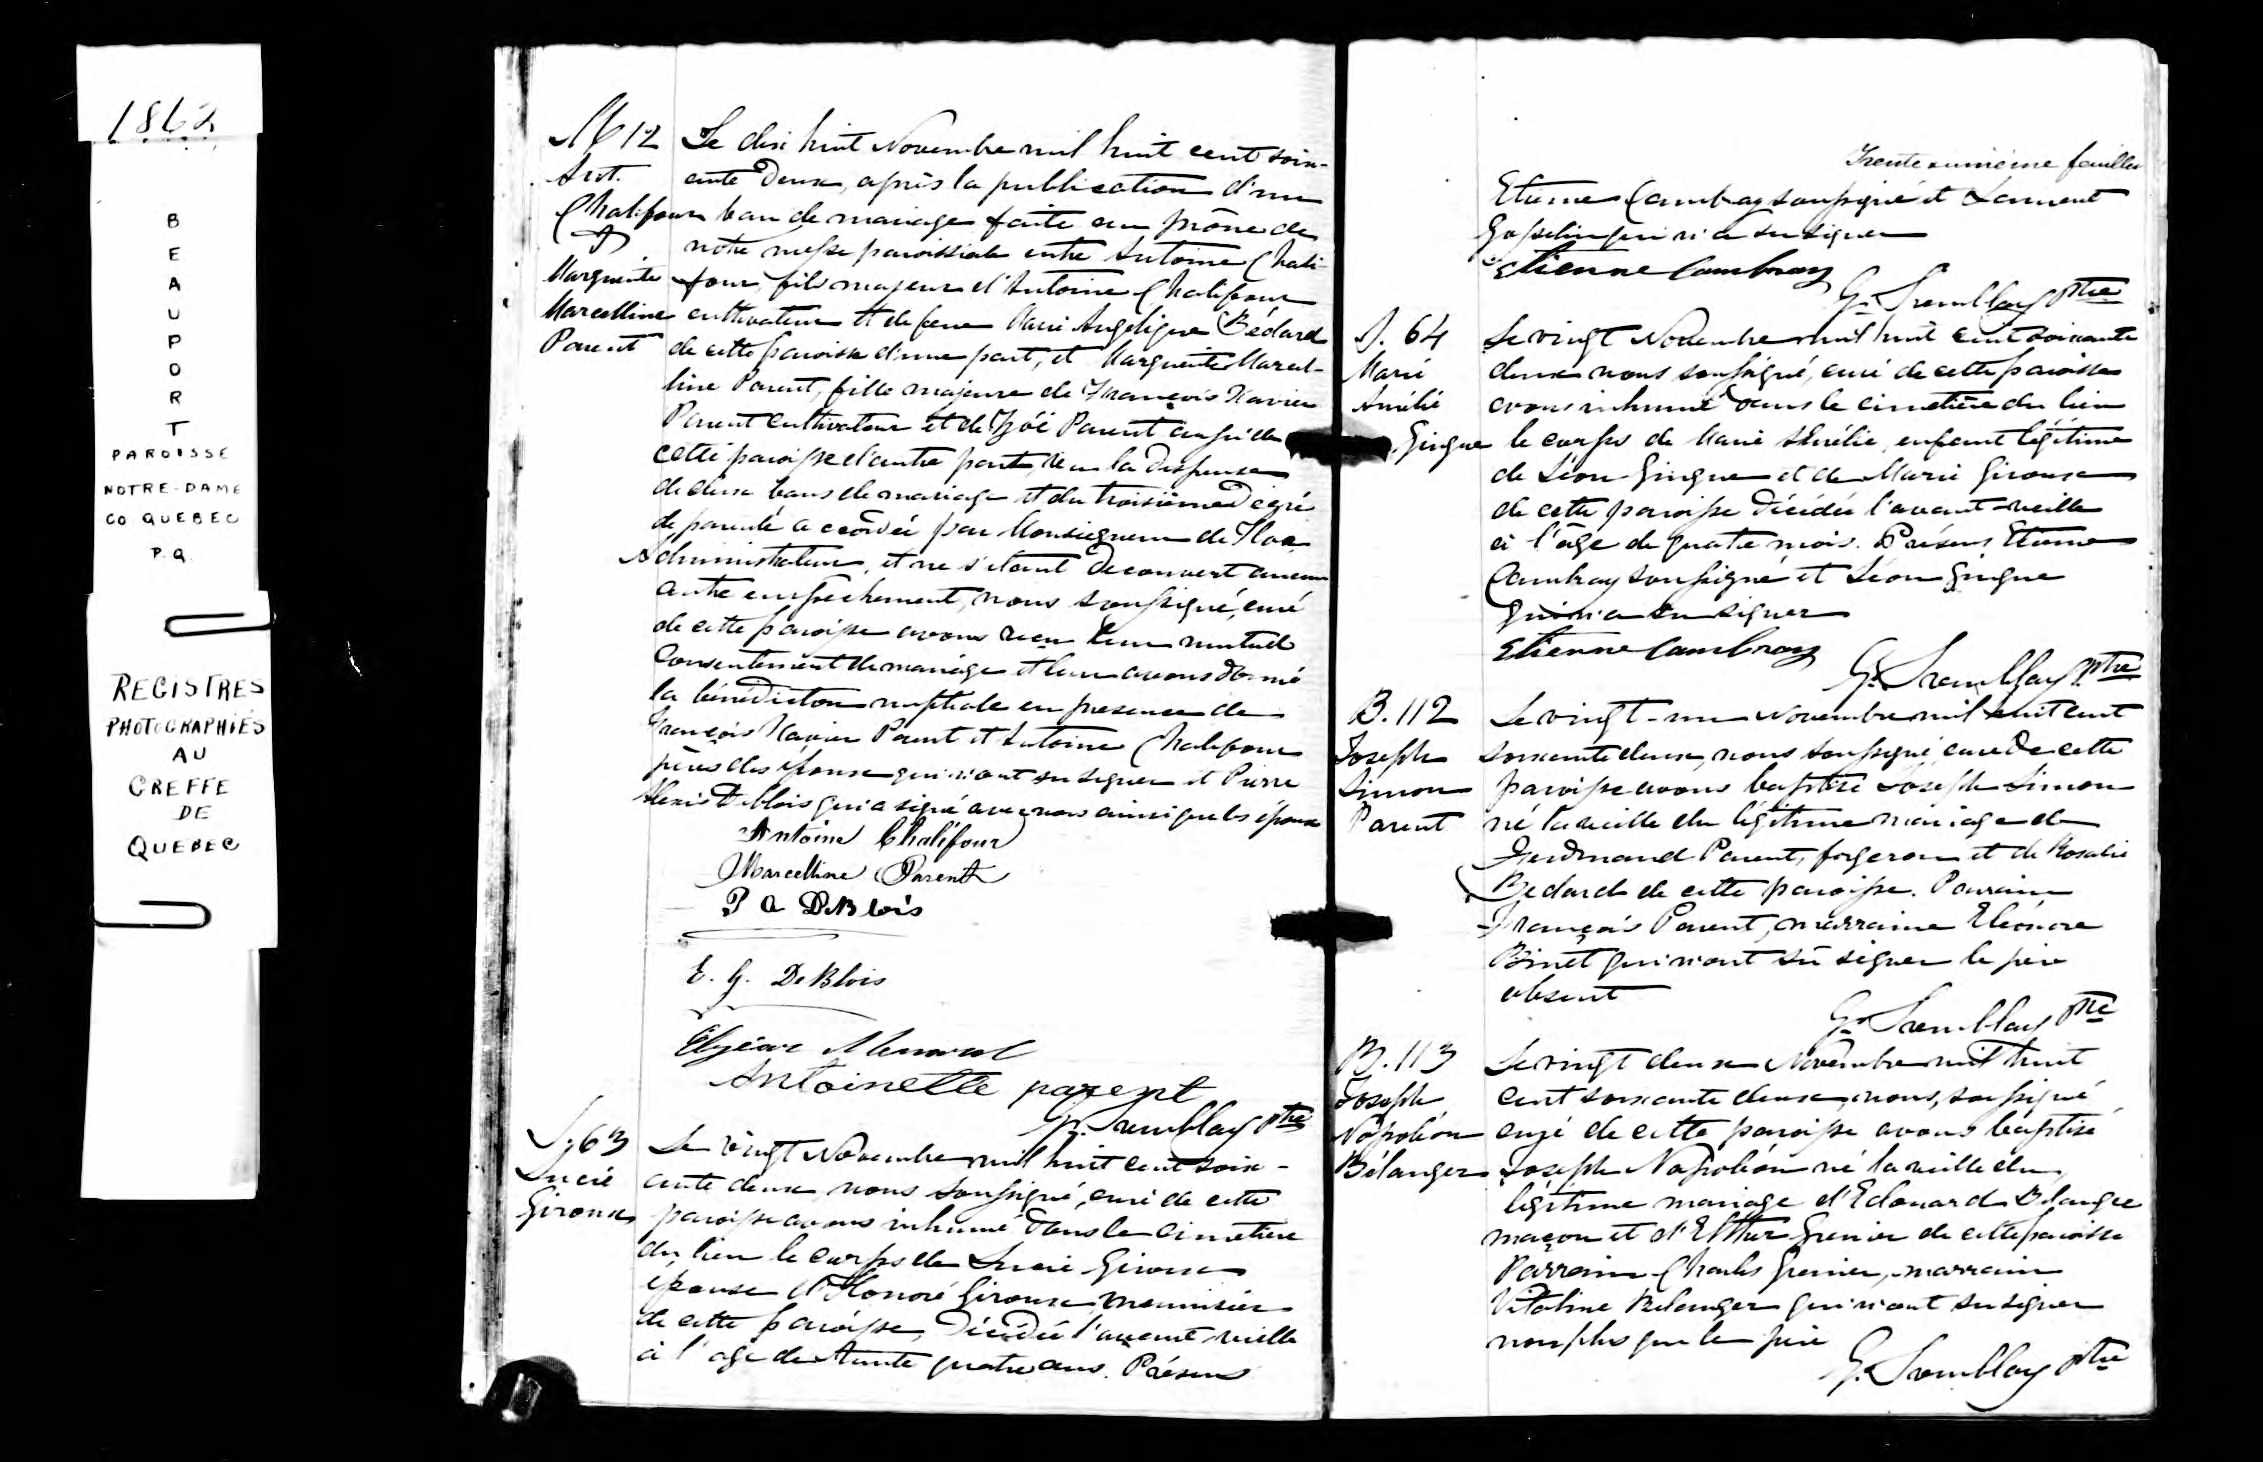 1862
BEAUPORT
PAROISSE
NOTRE-DAME
CO QUEBEC
P.Q.
REGISTRES
PHOTOGRAPHIÉS
AU
GREFFE
DE
QUEBEC
M 12
Ant.
Chalifour
&
Marguerite
Marcelline
Parent
Le dix huit Novembre mil huit cent soix-
ante deux, après la publication d'un
ban de mariage faite au prône de
notre messe paroissiale entre Antoine Chali-
four, fils majeur d'Antoine Chalifour
cultivateur et de feue Marie Angélique Bédard
de cette paroisse d'une part, et Marguerite Marcel-
line Parent, fille majeure de François Xavier
Parent cultivateur et de Zoé Parent aussi de
cette paroisse d'autre part, vu la dispense
de deux bans de mariage et du troisième dégré
de parenté accordée par Monseigneur de Tloa
Administrateur, et ne s'étant découvert aucun
autre empêchement, nous soussigné, curé
de cette paroisse avons reçu leur mutuel
consentement de mariage et leur avons donné
la bénédiction nuptiale en présence de
François Xavier Parent et Antoine Chalifour
pères des époux qui n'ont su signer et Pierre
Alexis DeBlois qui a signé avec nous ainsi que les époux
Antoine Chalifour
Marcelline Parent
P A DeBlois
E. G. DeBlois
Antoinette parent
G. Tremblay Ptre
S. 63
Lucie
Giroux
Le vingt Novembre mil huit cent soix-
ante deux nous soussigné, curé de cette
paroisse avons inhumé dans le cimetière
du lieu le corps de Lucie Giroux
épouse d'Honoré Giroux menuisier
de cette paroisse, décédée l'avant-veille
à l'age de trente quatre ans. Présens
Trente unième feuillet
Etienne Cambray soussigné et Laurent
Gosselin qui n'a su signer
Etienne Cambray
G. Tremblay Ptre
S. 64
Marie
Amélie
Gingue
Le vingt Novembre mil huit cent soixante
deux nous soussigné, curé de cette paroisse
avons inhumé dans le cimetière du lieu
le corps de Marie Amélie, enfant légitime
de Léon Gingue et de Marie Giroux
de cette paroisse décédée l'avant-veille
à l'âge de quatre mois. Présens Etienne
Cambray soussigné et Léon Gingue
qui n'a su signer
Etienne Cambray
G. Tremblay Ptre
B. 112
Joseph
Simon
Parent
Le vingt-un Novembre mil huit cent
soixante deux, nous soussigné curé de cette
paroisse avons baptisé Joseph Simon
né la veille du légitime mariage de
Ferdinand Parent, forgeron et de Rosalie
Bedard de cette paroisse. Parrain
François Parent, marraine Eléonore
Binet qui n'ont sû signer le père
absent
G. Tremblay Ptre
B. 113
Joseph
Napoléon
Bélanger
Le vingt deux Novembre mil huit
cent soixante deux, nous, soussigné
curé de cette paroisse avons baptisé
Joseph Napoléon né la veille du
légitime mariage d'Edouard Belanger
maçon et d'Esther Grenier de cette paroisse
Parrain Charles Grenier, marraine
Vitaline Belanger qui n'ont su signer
non plus que le père
G. Tremblay Ptre